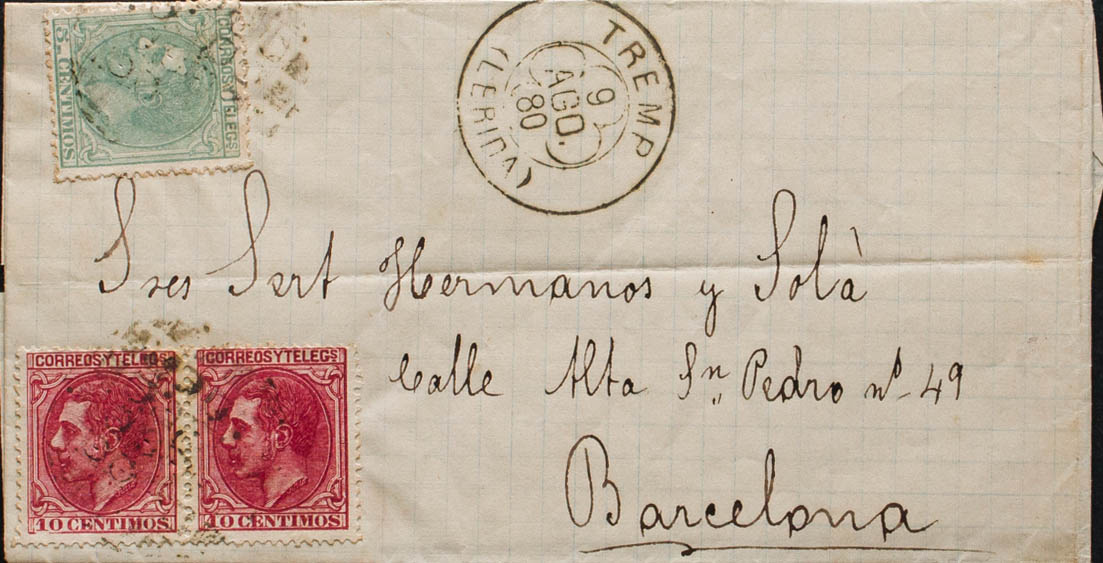 CORREOS Y TELEGS
5. CENTIMOS
TREMP
9
AGO.
80
(LERIDA)
Sres Sert Hermanos y Solà
Calle Alta Sn Pedro nº 49
Barcelona
CORREOS Y TELEGS
10 CENTIMOS
CORREOS Y TELEGS
10 CENTIMOS